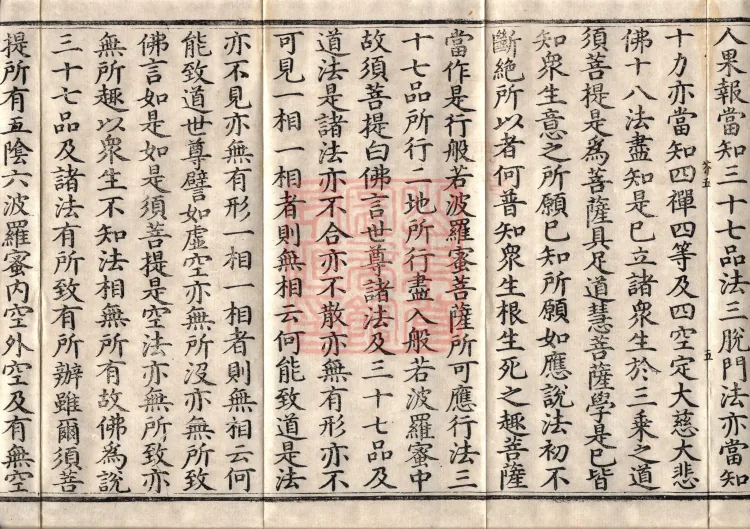 人果報當知三十七品法三脫門法亦當知
十力亦當知四禪四等及四空定大慈大悲
佛十八法盡知是已立諸衆生於三乘之道
須菩提是為菩薩具足道慧菩薩學是已皆
知衆生意之所願已知所願如應說法初不
斷絕所以者何普知衆生根生死之趣菩薩
當作是行般若波羅蜜菩薩所可應行法三
十七品所行二地所行盡入般若波羅蜜中
故須菩提白佛言世尊諸法及三十七品及
道法是諸法亦不合亦不散亦無有形亦不
可見一相一相者則無相云何能致道是法
亦不見亦無有形一相一相者則無相云何
能致道世尊譬如虛空亦無所沒亦無所致
佛言如是如是須菩提是空法亦無所致亦
無所趣以衆生不知法相無所有故佛為說
三十七品及諸法有所致有所辦雖爾須菩
提所有五陰六波羅蜜內空外空及有無空